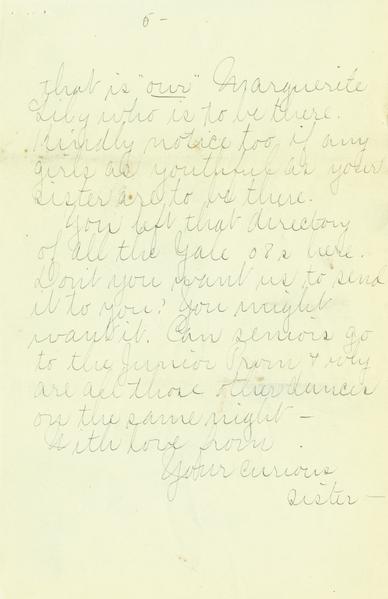 5-
that is "our" Marguerite
Lily who is to be there.
Kindly notice too if any
girls as youthful as your
sister are to be there.
You left that directory
of all the Yale 08s here.
Don't you want us to send
it to you? You might
want it. Can seniors go
to the Junior Prom & why
are all those other dances
on the same night —
With love from
Your curious
sister —